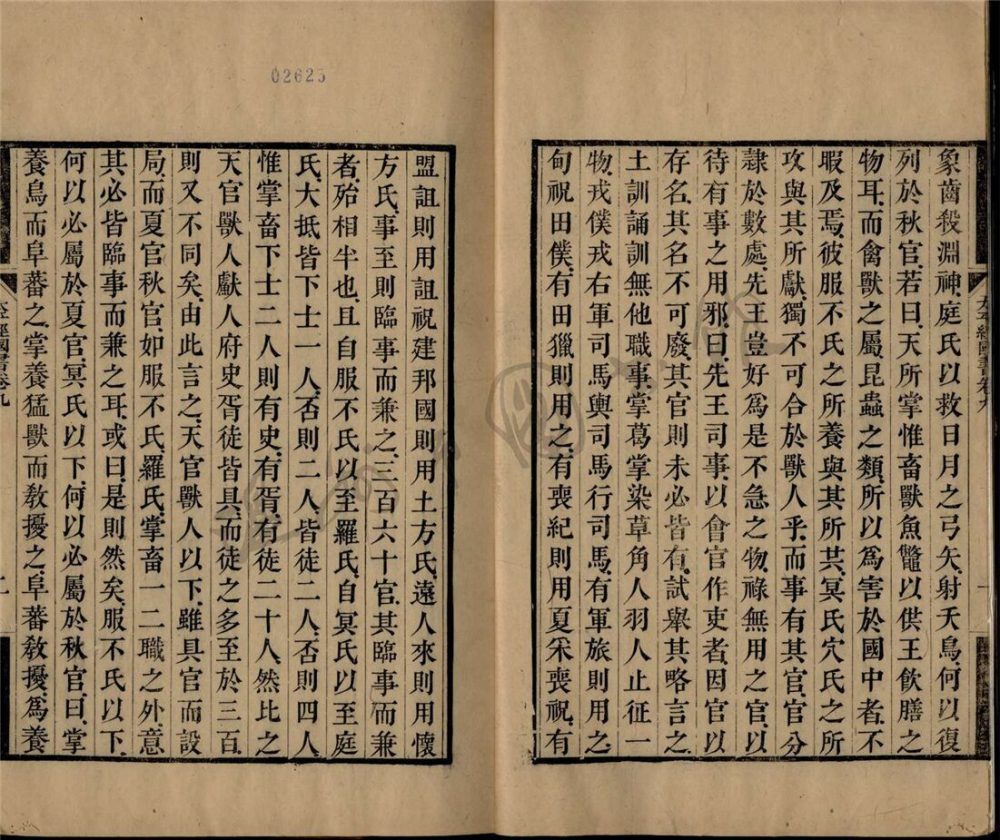 象齒殺淵神庭氏以救日月之弓矢射夭鳥何以復
列於秋官若曰天所掌惟畜獸魚鼈以供王飲膳之
物耳而禽獸之屬昆蟲之類所以爲害於國中者不
暇及焉彼服不氏之所養與其所共冥氏穴氏之所
攻與其所獻獨不可合於獸人乎而事有其官官分
隸於數處先王豈好爲是不急之物祿無用之官以
待有事之用邪曰先王司事以會官作吏者因官以
存名其名不可廢其官則未必皆有試舉其略言之
土訓誦訓無他職事掌葛掌染草角人羽人止征一
物戎僕戎右軍司馬輿司馬行司馬有軍旅則用之
甸祝田僕有田獵則用之有喪紀則用夏采喪祝有
太平經國書卷九
02625
盟詛則用詛祝建邦國則用土方氏遠人來則用懷
方氏事至則臨事而兼之三百六十官其臨事而兼
者殆相半也且自服不氏以至羅氏自冥氏以至庭
氏大抵皆下士一人否則二人皆徒二人否則四人
惟掌畜下士二人則有史有胥有徒二十人然比之
天官獸人䱷人府史胥徒皆具而徒之多至於三百
則又不同矣由此言之天官獸人以下雖具官而設
局而夏官秋官如服不氏羅氏掌畜一二職之外意
其必皆臨事而兼之耳或曰是則然矣服不氏以下
何以必屬於夏官冥氏以下何以必屬於秋官曰掌
養鳥而阜蕃之掌養猛獸而敎擾之阜蕃敎擾爲養
太平經國書卷九
二